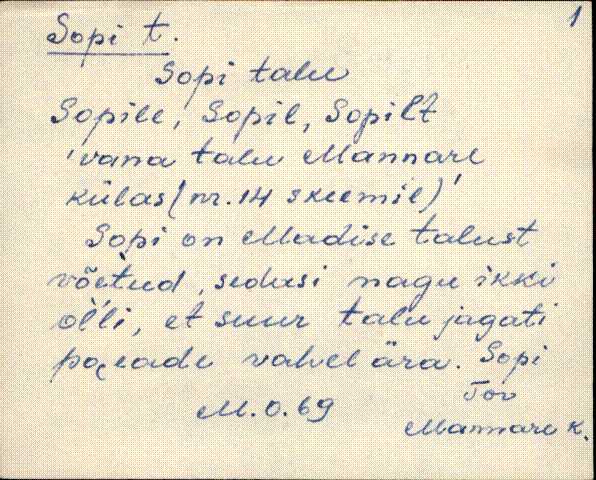 1
Sopi t.
Sopi talu
Sopile, Sopil, Sopilt
'vana talu Mannare
külas (nr. 14 skeemil)'
Sopi on Madise talust
võetud, sedasi nagu ikki
olli, et suur talu jagati
poeade vahel ära. Sopi
M.O.69
Tõv
Mannare k.